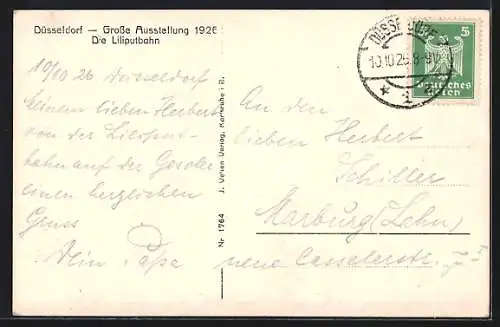 Düsseldorf — Große Ausstellung 1926
Die Liliputbahn
10/10 26 Düsseldorf
Meinem lieben Herbert
von der Liliput-
bahn auf der Gesolei
einen herzlichen
Gruss
Dein Papa
Nr. 1764 J. Velten Verlag, Karlsruhe i. B.
DÜSSELDORF
10.10.26.8-9V
* 1
5
Deutsches
Reich
An den
lieben Herbert
Schiller
Marburg (Lahn)
neue Casselerstr.